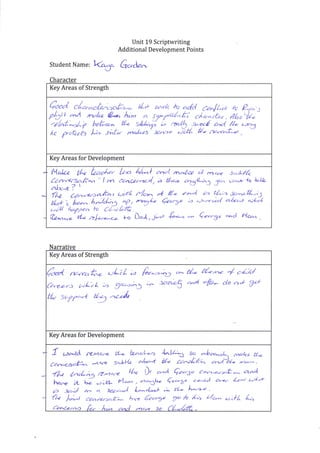 Unit 19 Scriptwriting
Additional Development Points
Student Name: Kaya Gordon
Character
Key Areas of Strength
Good characterisation that work to add conflict to
plot and make him a sympathetic character. Also the
relationship between the siblings is really sweet and the way
he protects his sister makes sense with the narrative.
Key Areas for Development
- Make the teacher less blunt and make it more subtle
conversation "I'm concerned, is there anything you want to talk
about?"
- The conversation with Mam at the end as this something
that's been building up, maybe George is worried about what
will happen to Charlotte
- Remove the reference to Dad, just focus on George and Mam.
Narrative
Key Areas of Strength
Good narrative which is focusing on the theme of child
carers which is growing in society and often do not get
the support they need
Key Areas for Development
- I would remove the teachers being so, make the
conversation more subtle about the and the mam.
- The ending remove the Dr and George conversation and
have it be with Mam, maybe George could over hear what
is said in a second location in the house.
- The final conversation have George go to his Mam with his
concerns for him and mam so Charlotte.